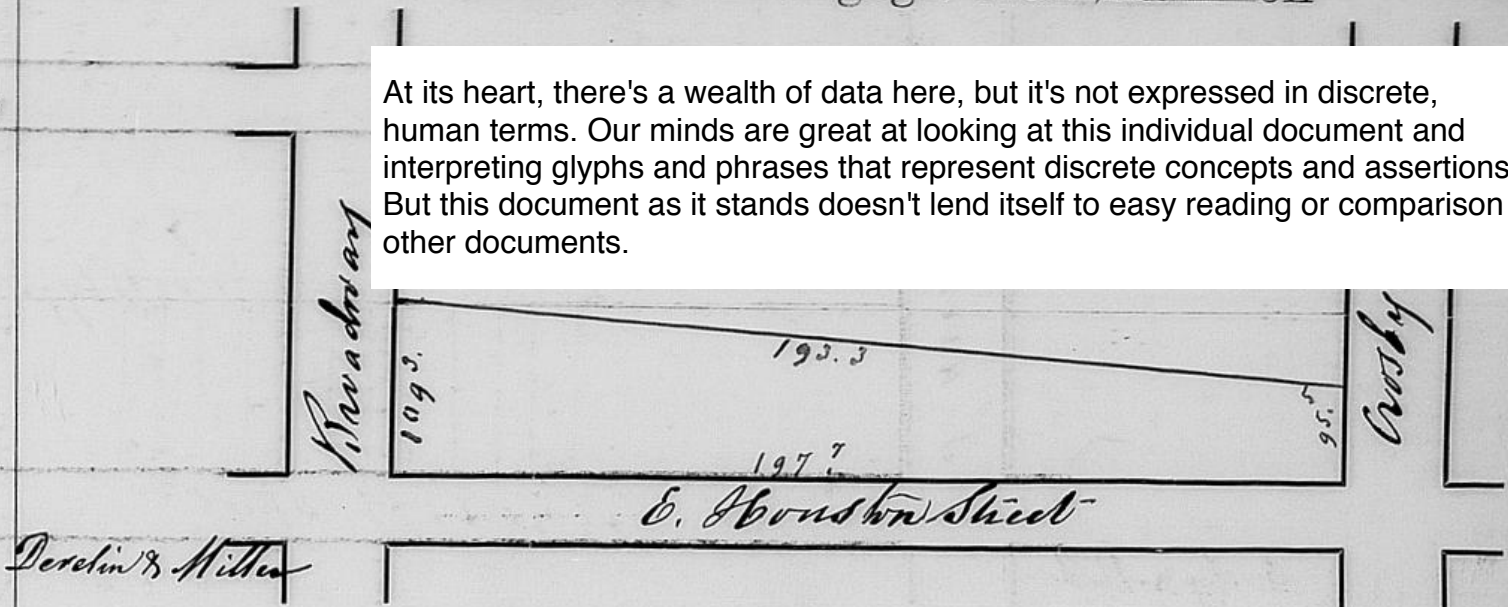 At its heart, there's a wealth of data here, but it's not expressed in discrete,
human terms. Our minds are great at looking at this individual document and
interpreting glyphs and phrases that represent discrete concepts and assertions
But this document as it stands doesn't lend itself to easy reading or comparison
other documents.
Broadway
109 3.
193.3
95. 5
Crosby
197 7
E. Houston Street
Develin & Miller